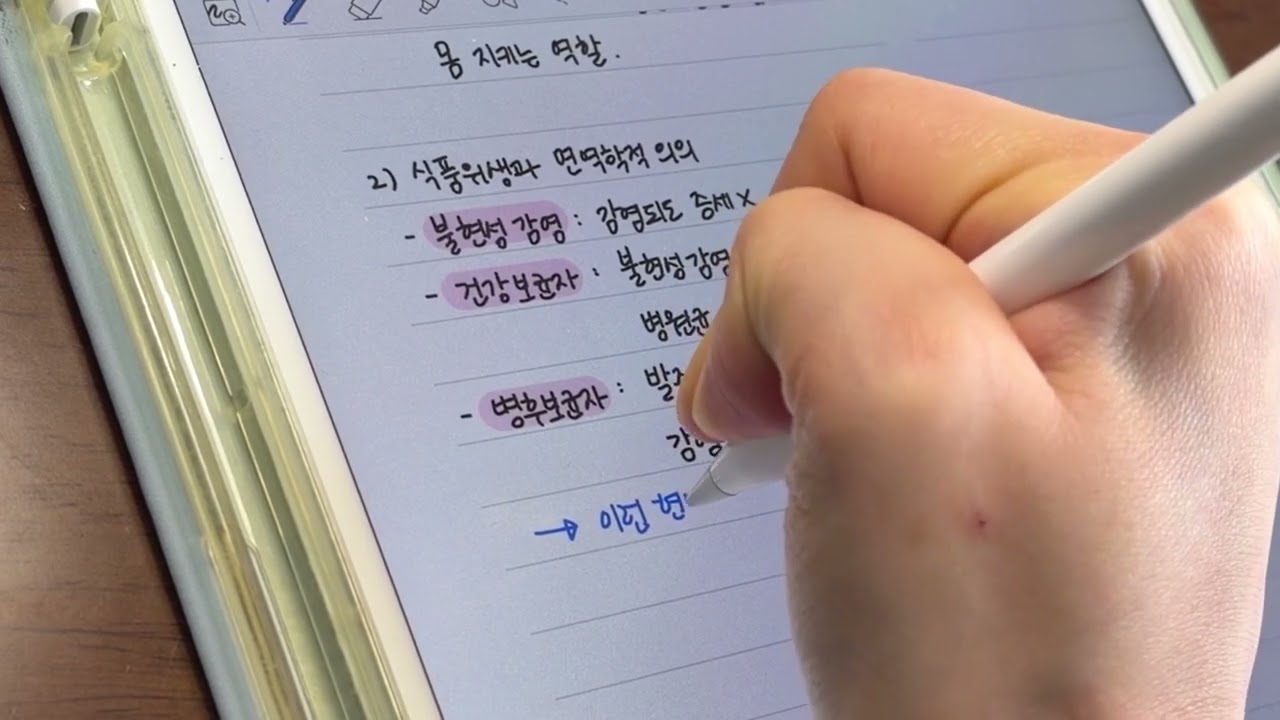 몸 지키는 역할.
2) 식품위생과 면역학적 의의
- 불현성 감염 : 감염되도 증세 X
- 건강보균자 : 불현성 감염
병원균
- 병후보균자 :
→ 이런